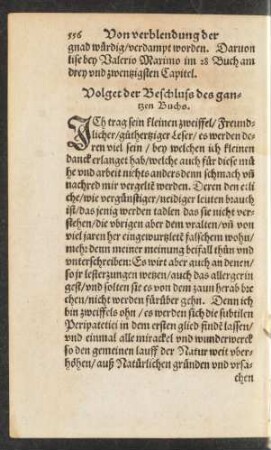 556 Von verblendung der
gnad würdig/verdampt worden. Daruon
lise bey Valerio Maximo im 28 Buch am
drey vnd zwentzigsten Capitel.
Volget der Beschluß des gan-
tzen Buchs.
ICh trag sein kleinen zweiffel/ Freund-
licher/gůthertziger Leser/ es werden de-
ren viel sein / bey welchen ich kleinen
danck erlanget hab/welche auch für diese mü
he vnd arbeit nichts anders denn schmach vñ
nachred mir vergeltẽ werden. Deren den etli
che/wie vergünstiger/neidiger leuten brauch
ist/das jenig werden tadlen das sie nicht ver-
stehen/die vbrigen aber dem vralten/vñ von
viel jaren her eingewurtzlet falschem wohn/
mehr denn meiner meinung beifall thůn vnd
vnterschreiben: Es wirt aber auch an denen/
so jr lesterzungen wetzen/auch das allergerin
gest/vnd solten sie es von dem zaun herab bre
chen/nicht werden fürüber gehn. Denn ich
bin zweiffels ohn / es werden sich die subtilen
Peripatetici in dem ersten glied findẽ lassen/
vnd einmal alle mirackel vnd wunderwerck
so den gemeinen lauff der Natur weit vber-
höhen/ auß Natürlichen gründen vnd vrsa-
chen